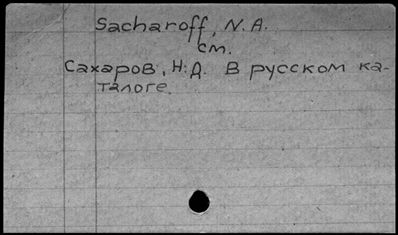 Sacharoff, N.A.
см.
Сахаров, Н.Д. В русском ка-
талоге.